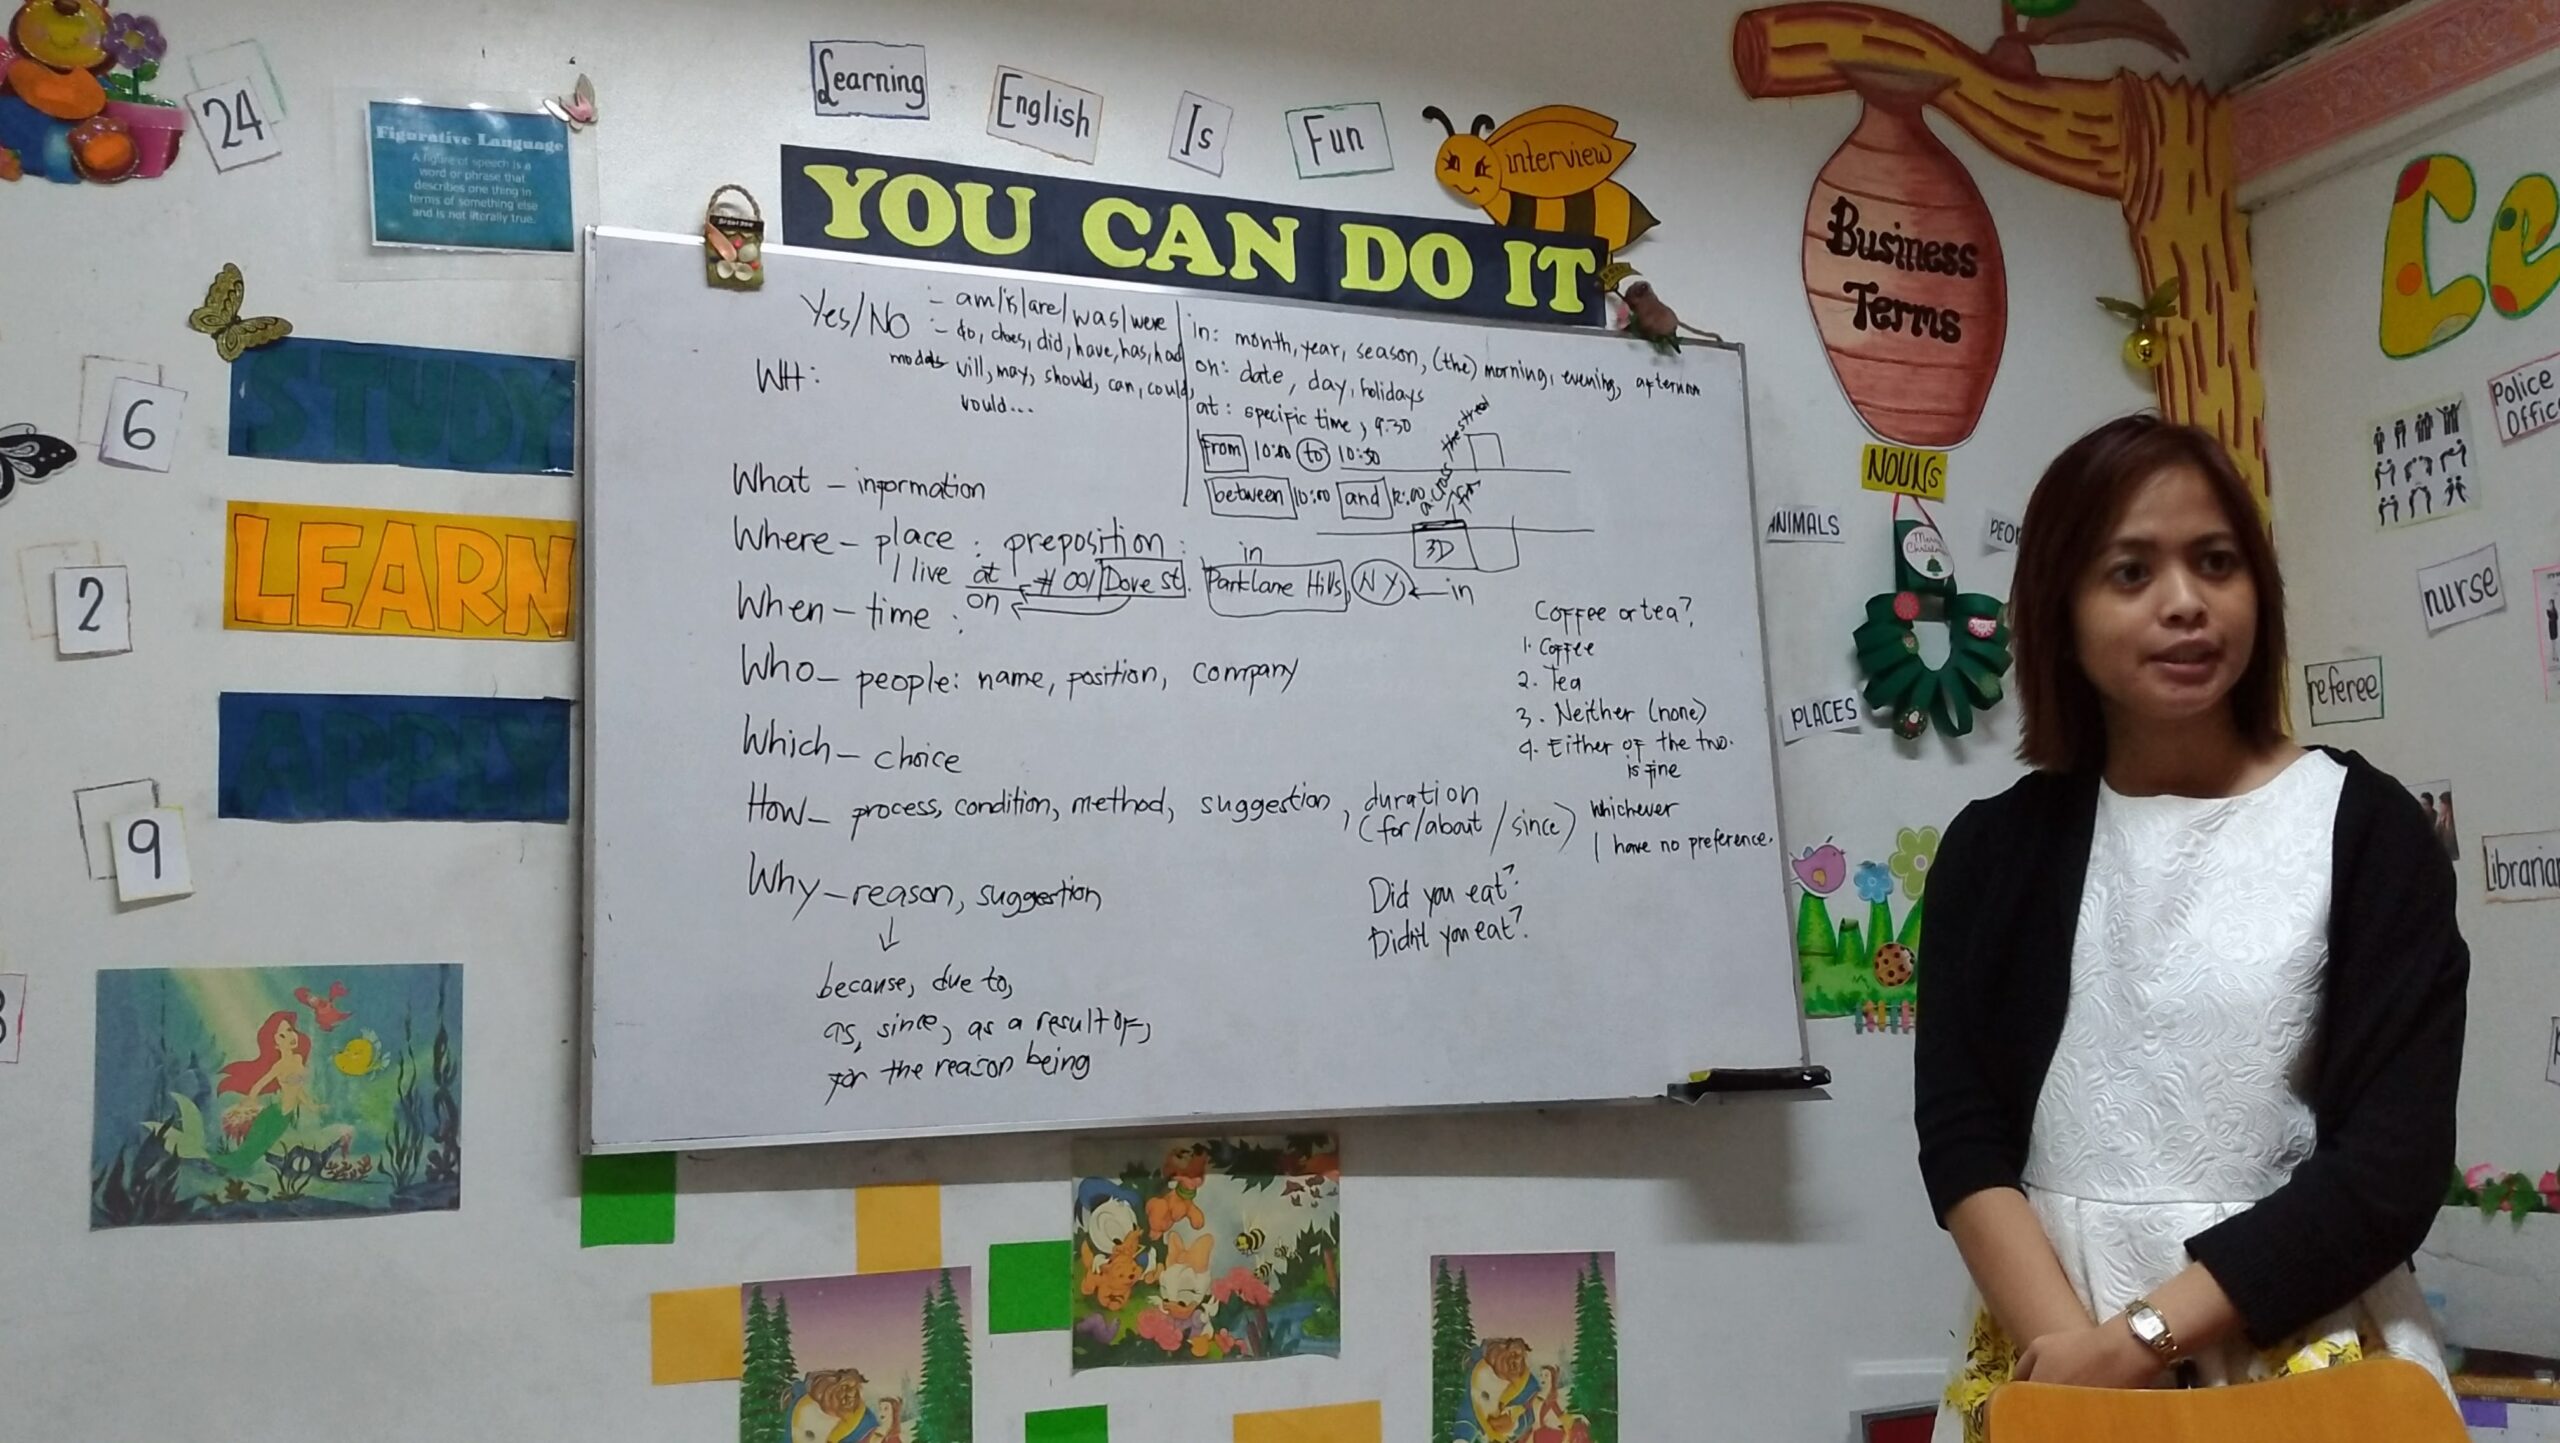 24
Figurative Language
A figure of speech is a
word or phrase that
describes one thing in
terms of something else
and is not literally true.
Learning English Is Fun
YOU CAN DO IT
interview
Business
Terms
6
2
9
STUDY
LEARN
APPLY
Yes/No - am/is/are/was/were
- do, does, did, have, has, had
modals will, may, should, can, could,
would...
WH:
in: month, year, season, (the) morning, evening, afternoon
on: date, day, holidays
at: specific time, 9:30
from 10:00 to 10:30
between 10:00 and 12:00
across the street
3D
What - information
Where - place : preposition :
I live at #001 Dove st. Parklane Hills, NY
on
in
in
When - time :
Who - people: name, position, company
Which - choice
How - process, condition, method, suggestion, duration
(for/about/since)
Why - reason, suggestion
because, due to,
as, since, as a result of,
for the reason being
Coffee or tea?
1. Coffee
2. Tea
3. Neither (none)
4. Either of the two
is fine
whichever
I have no preference.
Did you eat?
Didn't you eat?
NOUNS
ANIMALS
PLACES
Merry
Christmas
Le
Police
nurse
referee